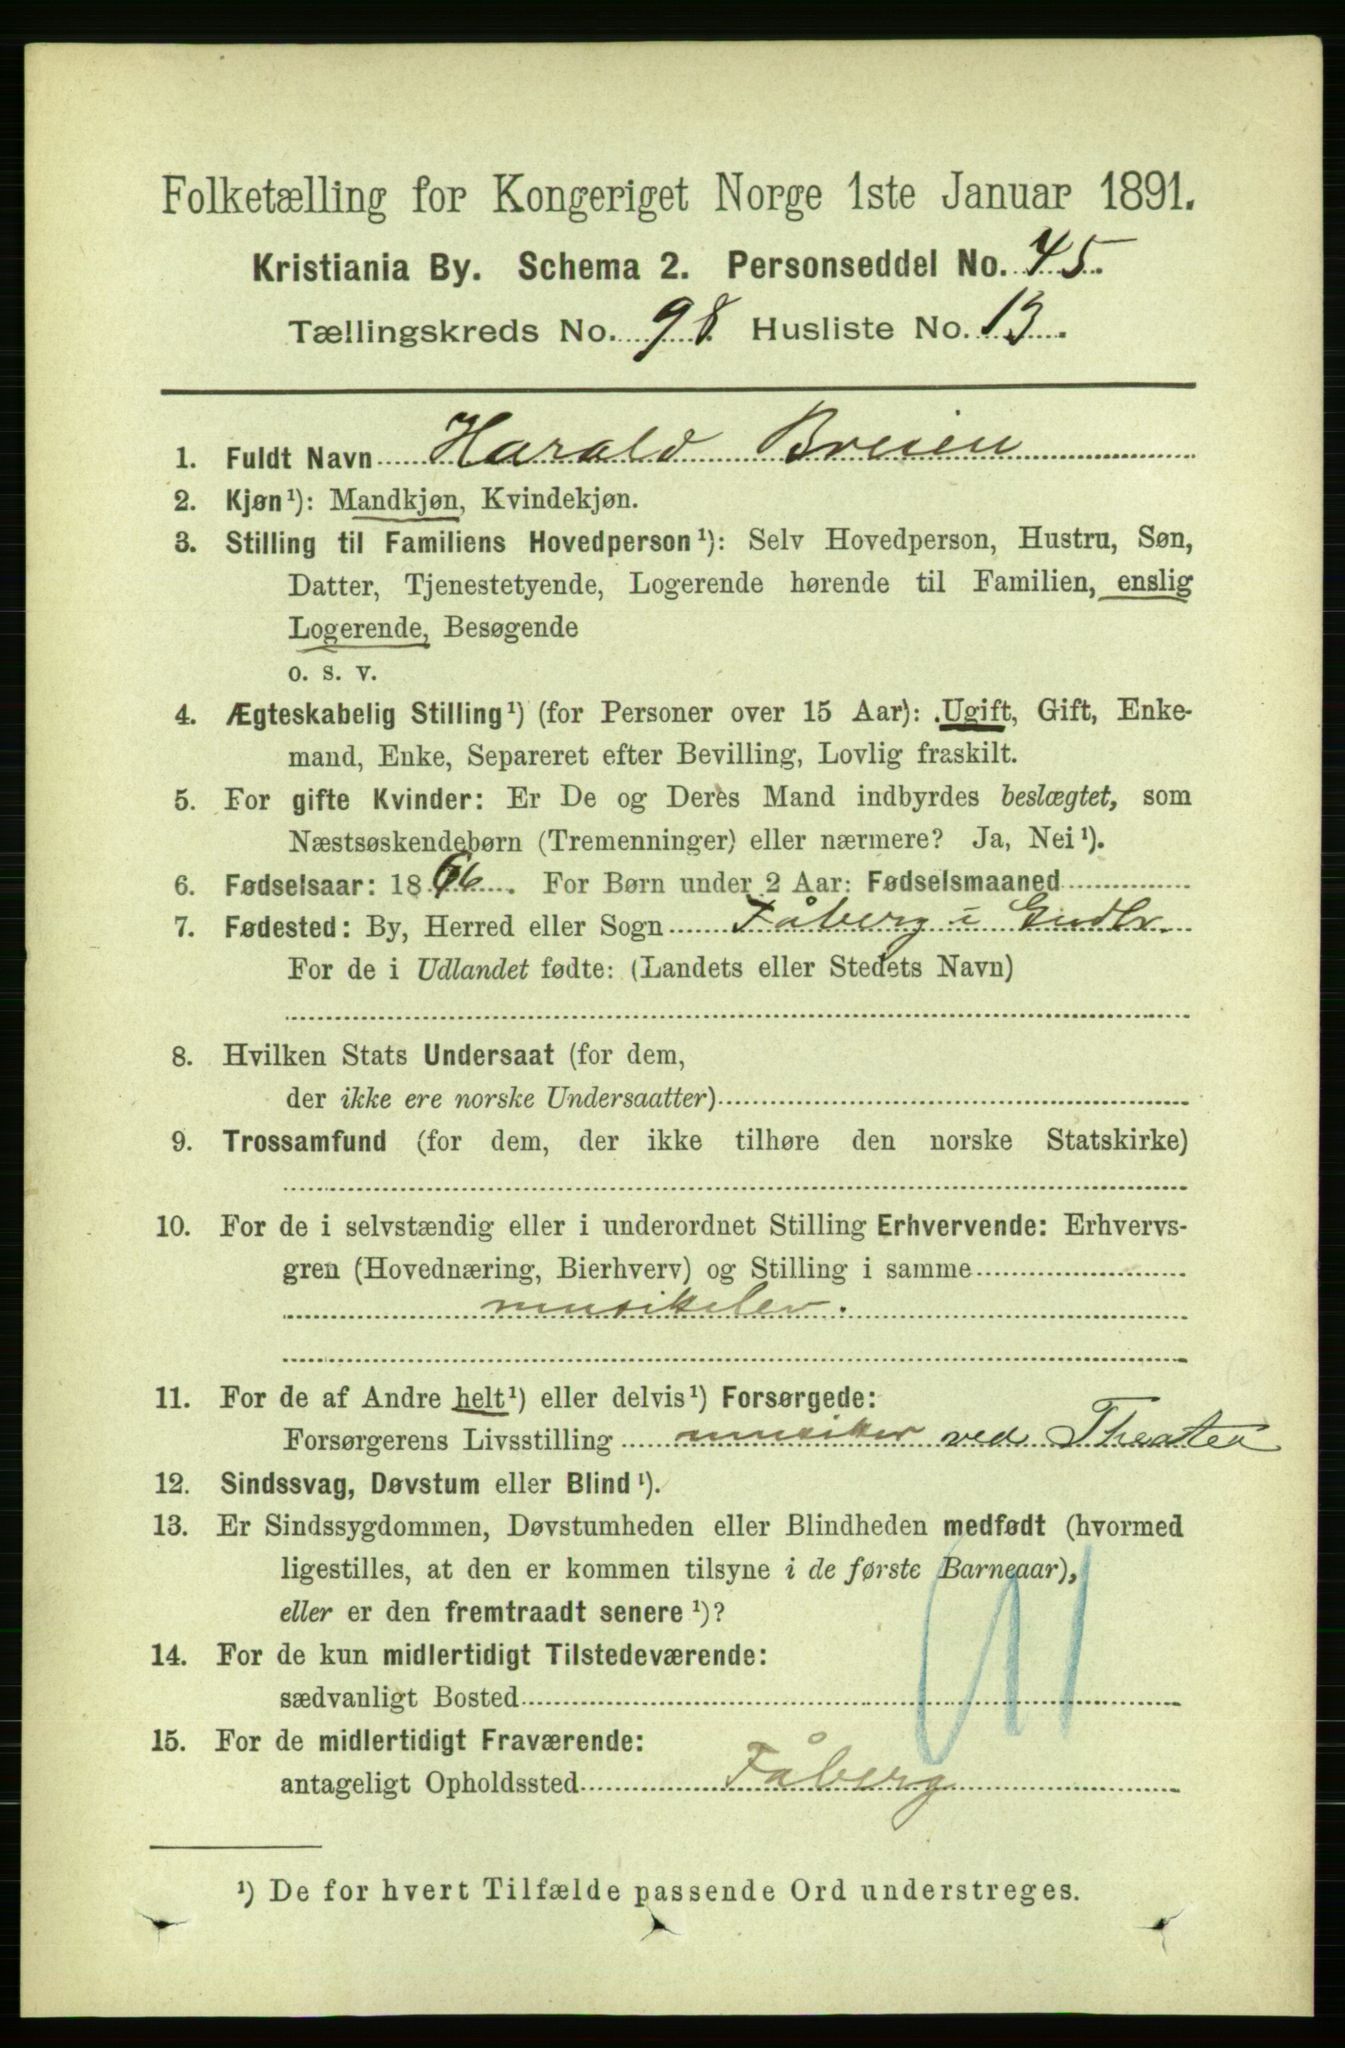 Folketælling for Kongeriget Norge 1ste Januar 1891.
Kristiania By. Schema 2. Personseddel No. 45.
Tællingskreds No. 98 Husliste No. 13.
1. Fuldt Navn Harald Breien
2. Kjøn¹): Mandkjøn, Kvindekjøn.
3. Stilling til Familiens Hovedperson¹): Selv Hovedperson, Hustru, Søn,
Datter, Tjenestetyende, Logerende hørende til Familien, enslig
Logerende, Besøgende
o. s. v.
4. Ægteskabelig Stilling¹) (for Personer over 15 Aar): Ugift, Gift, Enke-
mand, Enke, Separeret efter Bevilling, Lovlig fraskilt.
5. For gifte Kvinder: Er De og Deres Mand indbyrdes beslægtet, som
Næstsøskendebørn (Tremenninger) eller nærmere? Ja, Nei¹).
6. Fødselsaar: 1866. For Børn under 2 Aar: Fødselsmaaned
7. Fødested: By, Herred eller Sogn Fåberg i Gudbr.
For de i Udlandet fødte: (Landets eller Stedets Navn)
8. Hvilken Stats Undersaat (for dem,
der ikke ere norske Undersaatter)
9. Trossamfund (for dem, der ikke tilhøre den norske Statskirke)
10. For de i selvstændig eller i underordnet Stilling Erhvervende: Erhvervs-
gren (Hovednæring, Bierhverv) og Stilling i samme
musikelev.
11. For de af Andre helt¹) eller delvis¹) Forsørgede:
Forsørgerens Livsstilling musiker ved Theatea
12. Sindssvag, Døvstum eller Blind¹).
13. Er Sindssygdommen, Døvstumheden eller Blindheden medfødt (hvormed
ligestilles, at den er kommen tilsyne i de første Barneaar),
eller er den fremtraadt senere¹)?
14. For de kun midlertidigt Tilstedeværende:
sædvanligt Bosted
15. For de midlertidigt Fraværende:
antageligt Opholdssted Fåberg
¹) De for hvert Tilfælde passende Ord understreges.